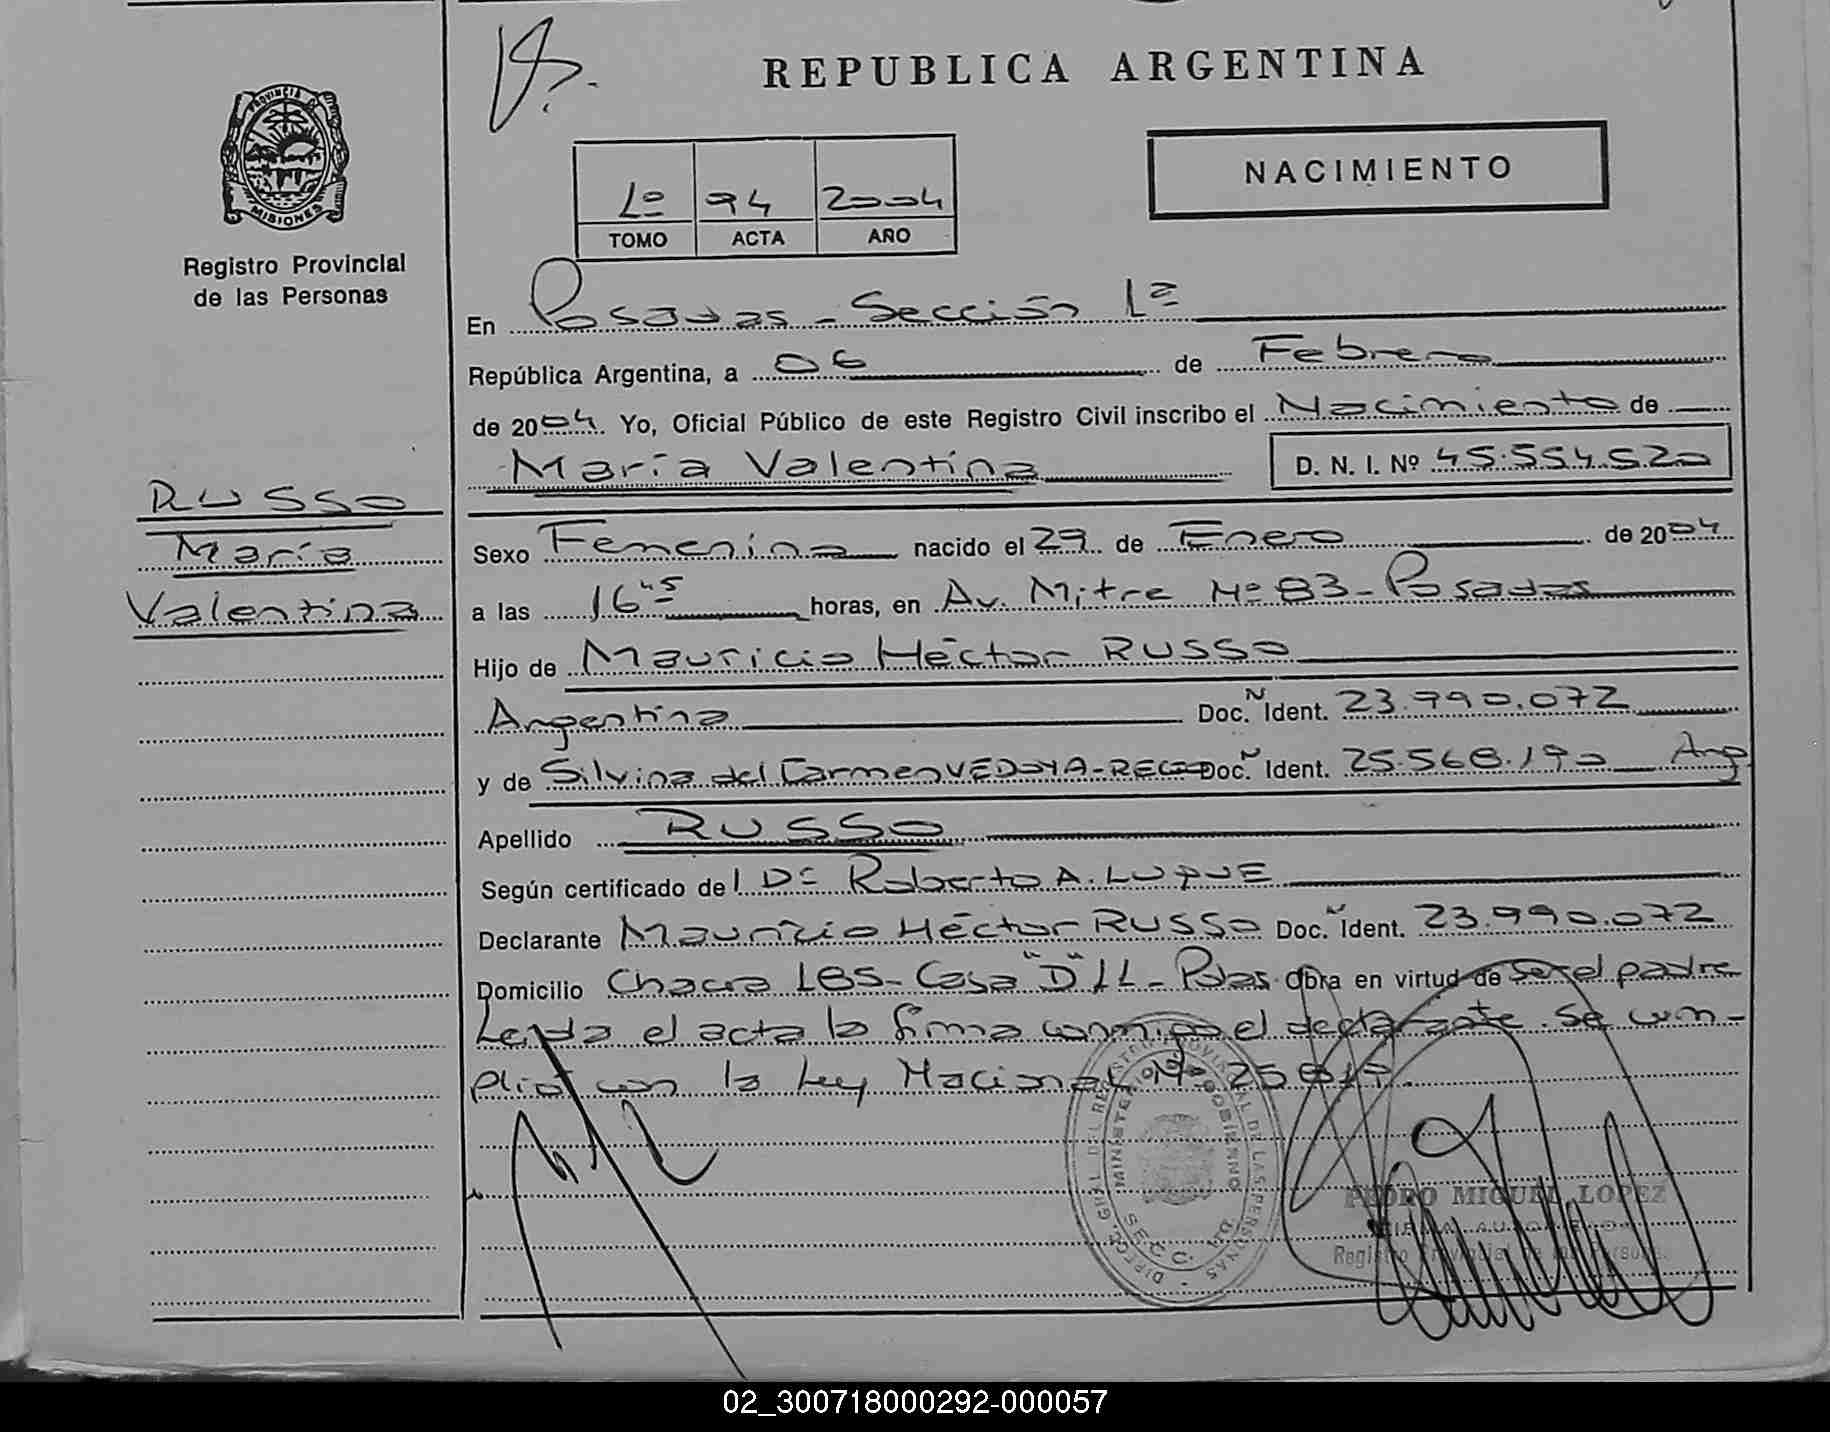 PROVINCIA DE
MISIONES
Registro Provincial
de las Personas
REPUBLICA ARGENTINA
NACIMIENTO
1º 94 2004
TOMO ACTA AÑO
En Posadas - Sección 1ª
República Argentina, a 06 de Febrero
de 2004. Yo, Oficial Público de este Registro Civil inscribo el Nacimiento de
María Valentina D. N. I. Nº 45.554.520
RUSSO
María
Valentina
Sexo Femenino nacido el 29 de Enero de 2004
a las 16 45 horas, en Av. Mitre Nº 83 - Posadas
Hijo de Mauricio Héctor RUSSO
Argentina Doc. Ñ Ident. 23.990.072
y de Silvina del Carmen VEDOYA - Doc. Ident. 25.568.190 Arg
Apellido RUSSO
Según certificado del Dr Roberto A. LUQUE
Declarante Mauricio Héctor RUSSO Doc. Ident. 23.990.072
Domicilio Chacra 185 - Casa "D" 11 - Pdas. Obra en virtud de ser el padre
Leida el acta la firma conmigo el declarante. Se cum-
plió con la Ley Nacional Nº
DIREC. GRAL. DEL REGISTRO PROVINCIAL DE LAS PERSONAS
MINISTERIO DE GOBIERNO
SECC.
PEDRO MIGUEL LOPEZ
Registro Provincial de las Personas
02_300718000292-000057